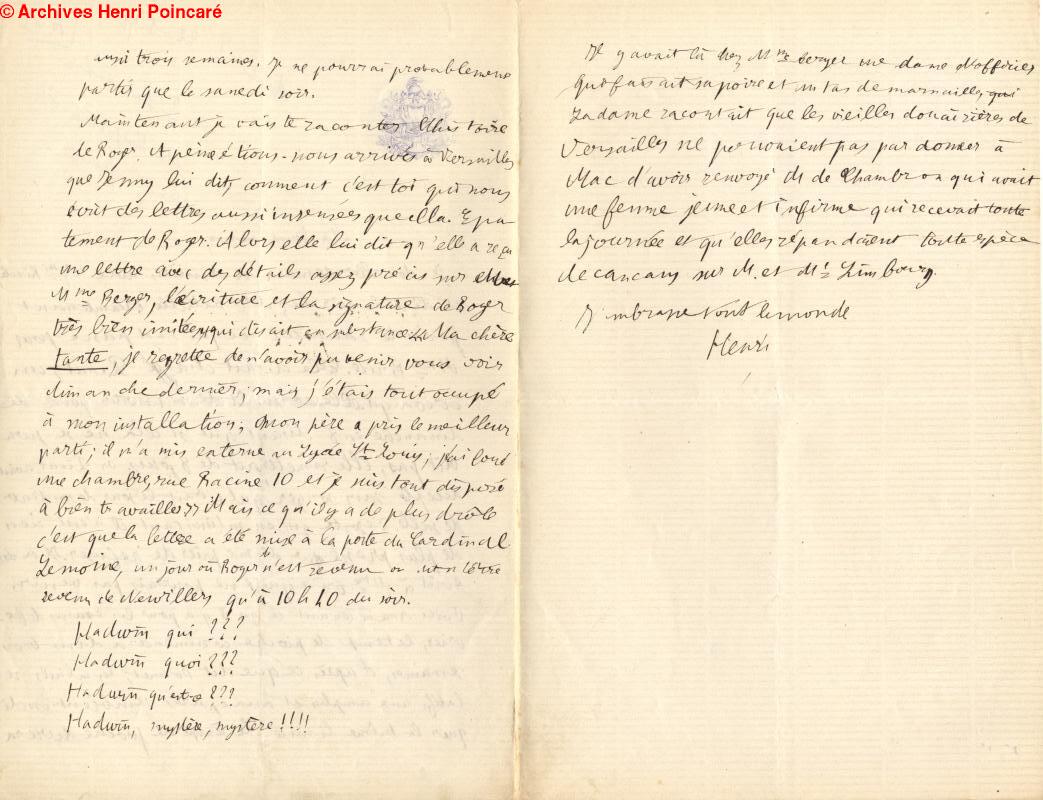 © Archives Henri Poincaré
trois semaines. Je ne pourrai probablement
partir que le samedi soir.
Maintenant je vais te raconter l'histoire
de Roger. A peine étions-nous arrivés à Versailles
que Jenny lui dit, comment c'est toi qui nous
écrit des lettres aussi insensées que cela. Epa
tement de Roger. Alors elle lui dit qu'elle a reçu
une lettre avec des détails assez précis sur
Mme Berger, l'écriture et la signature de Roger
très bien imitées, qui disait en substance << Ma chère
tante, je regrette de n'avoir pu venir vous voir
dimanche dernier; mais j'étais tout occupé
à mon installation; mon père a pris le meilleur
parti; il m'a mis externe au Lycée St Louis; j'ai loué
une chambre, rue Racine 10 et je suis tout disposé
à bien travailler >> Mais ce qu'il y a de plus drôle
c'est que la lettre a été mise à la poste du Cardinal
Lemoine, un jour où Roger n'est revenu
revenu de Newillers qu'à 10 h 40 du soir.
Hadwin qui ???
Hadwin quoi ???
Hadwin ???
Hadwin, mystère, mystère !!!!
Il y avait là chez Mme Berger une dame d'officier
qui faisait sa poire et un tas de marmailles
La dame racontait que les vieilles douairières de
Versailles ne pouvaient pas pardonner à
Mac d'avoir renvoyé M de Chambron qui avait
une femme jeune et infirme qui recevait toute
la journée et qu'elles répandaient toute espèce
de cancans sur M. et Me Limbourg.
J'embrasse tout le monde
Henri